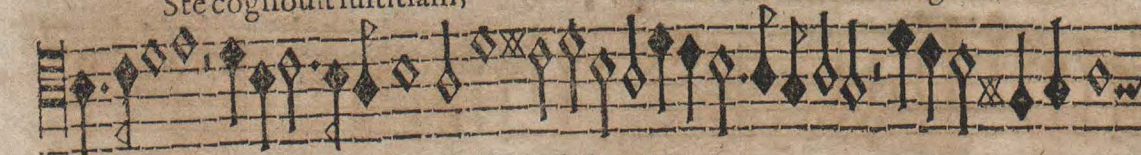 Ste cognouit iustitiam,